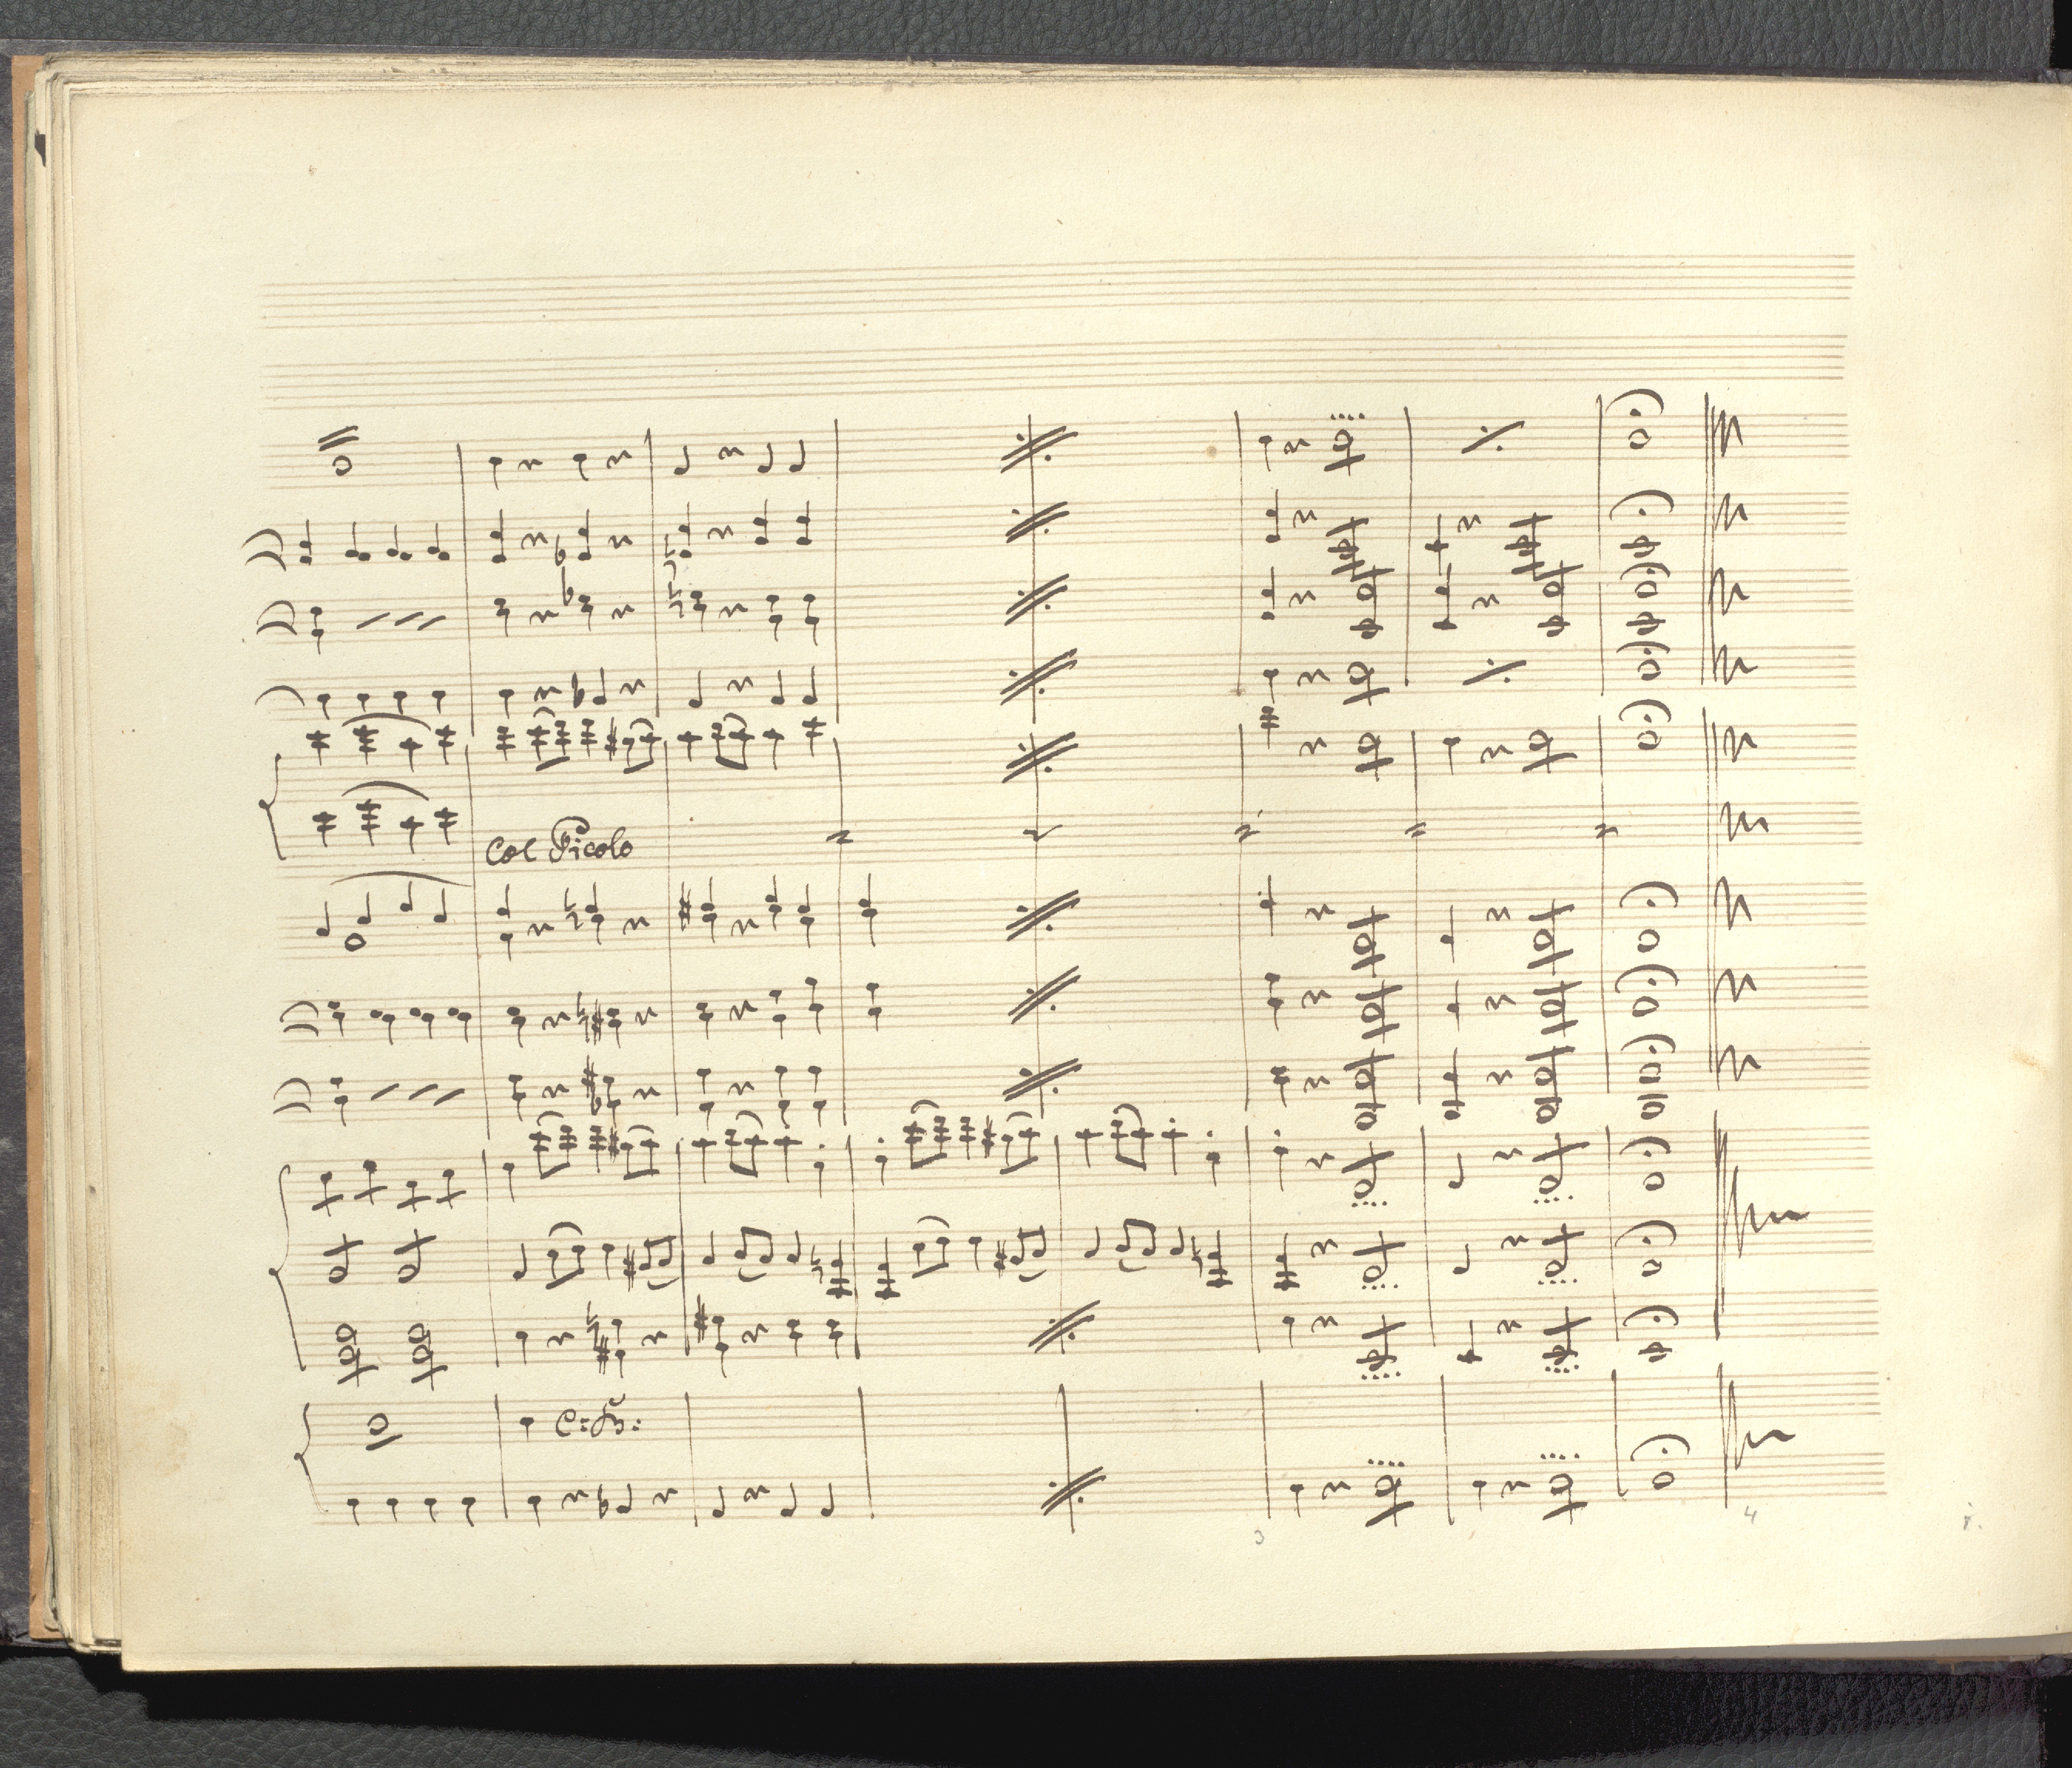 Col Picolo
C:B:
3
4